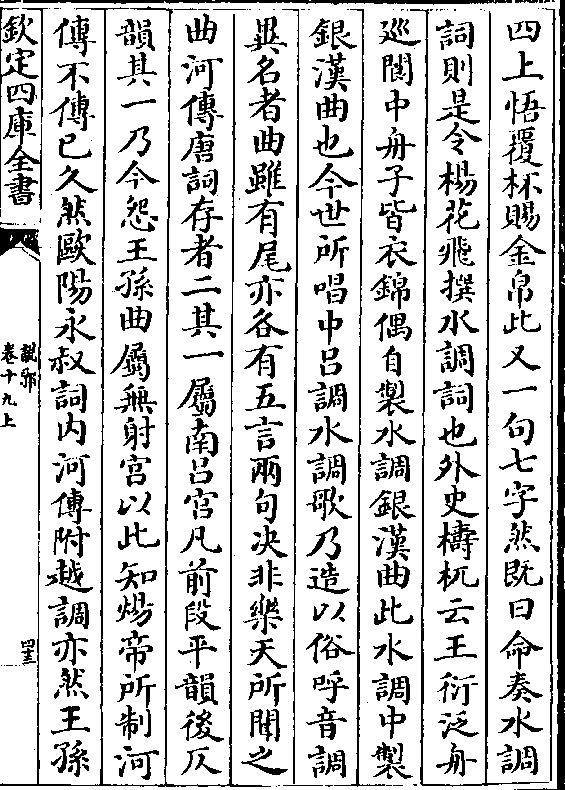 四上悟覆杯賜金帛此又一句七字然既曰命奏水調
詞則是令楊花飛撰水調詞也外史檮杌云王衍泛舟
巡閬中舟子皆衣錦偶自製水調銀漢曲此水調中製
銀漢曲也今世所唱中吕調水調歌乃造以俗呼音調
異名者曲雖有尾亦各有五言兩句决非樂天所聞之
曲河傳唐詞存者二其一屬南吕宫凡前段平韻後仄
韻其一乃今怨王孫曲屬無射宫以此知煬帝所制河
傳不傳已久然歐陽永叔詞内河傳附越調亦然王孫
欽定四庫全書
說郛
卷十九上
四十三